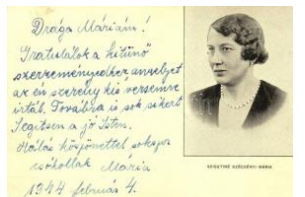 Drága Máriám!
Gratulálok a kitünő
szerzeményedhez amelyet
az én szerény kis versemre
irtál. Továbbra is sok sikert
Segitsen a jó Isten.
Hálás köszönettel sokszor
csókollak Mária
1944 február 4.
SZÉCSÉNYI MÁRIA